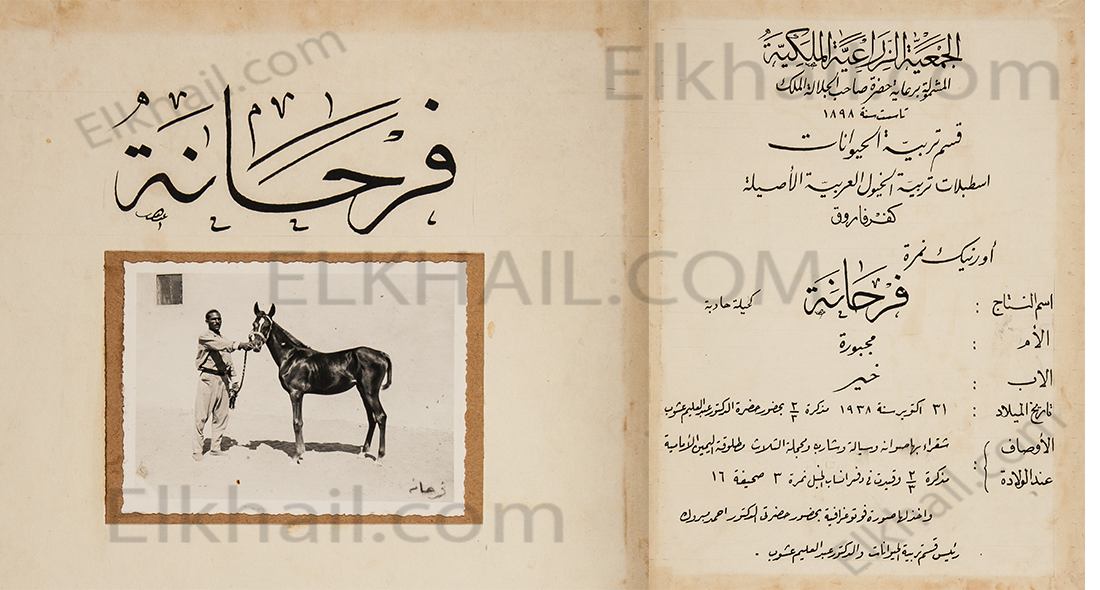 فَرْحَانَةُ
فرحانه
الجمعية الزراعية الملكية
المشمولة برعاية حضرة صاحب الجلالة الملك
تأسست سنة ١٨٩٨
قسم تربية الحيوانات
اسطبلات تربية الخيول العربية الأصيلة
كفر فاروق
أورنيك نمرة
اسم النتاج : فَرْحَانَةُ كحيلة
الأم : مجبورة
الاب : خير
تاريخ الميلاد : ٣١ اكتوبر سنة ١٩٣٨ مذكرة ٢/٣ بحضور حضرة الدكتور عبد العليم عشوب
الأوصاف عند الولادة : شقراء بها صوانه وسيالة وشاربه ومحجلة الثلاث ومطلوقة اليمين الأمامية
مذكرة ٢/٣ وقيدت فى دفر انساب الخيل نمرة ٣ صحيفة ١٦
واخذ لها صورة فوتوغرافية بحضور حضرتى الدكتور احمد مبروك
رئيس قسم تربية الحيوانات والدكتور عبد العليم عشوب .
Elkhail.com
Elkhail.com
ELKHAIL.COM
Elkhail.com
Elkhail.com